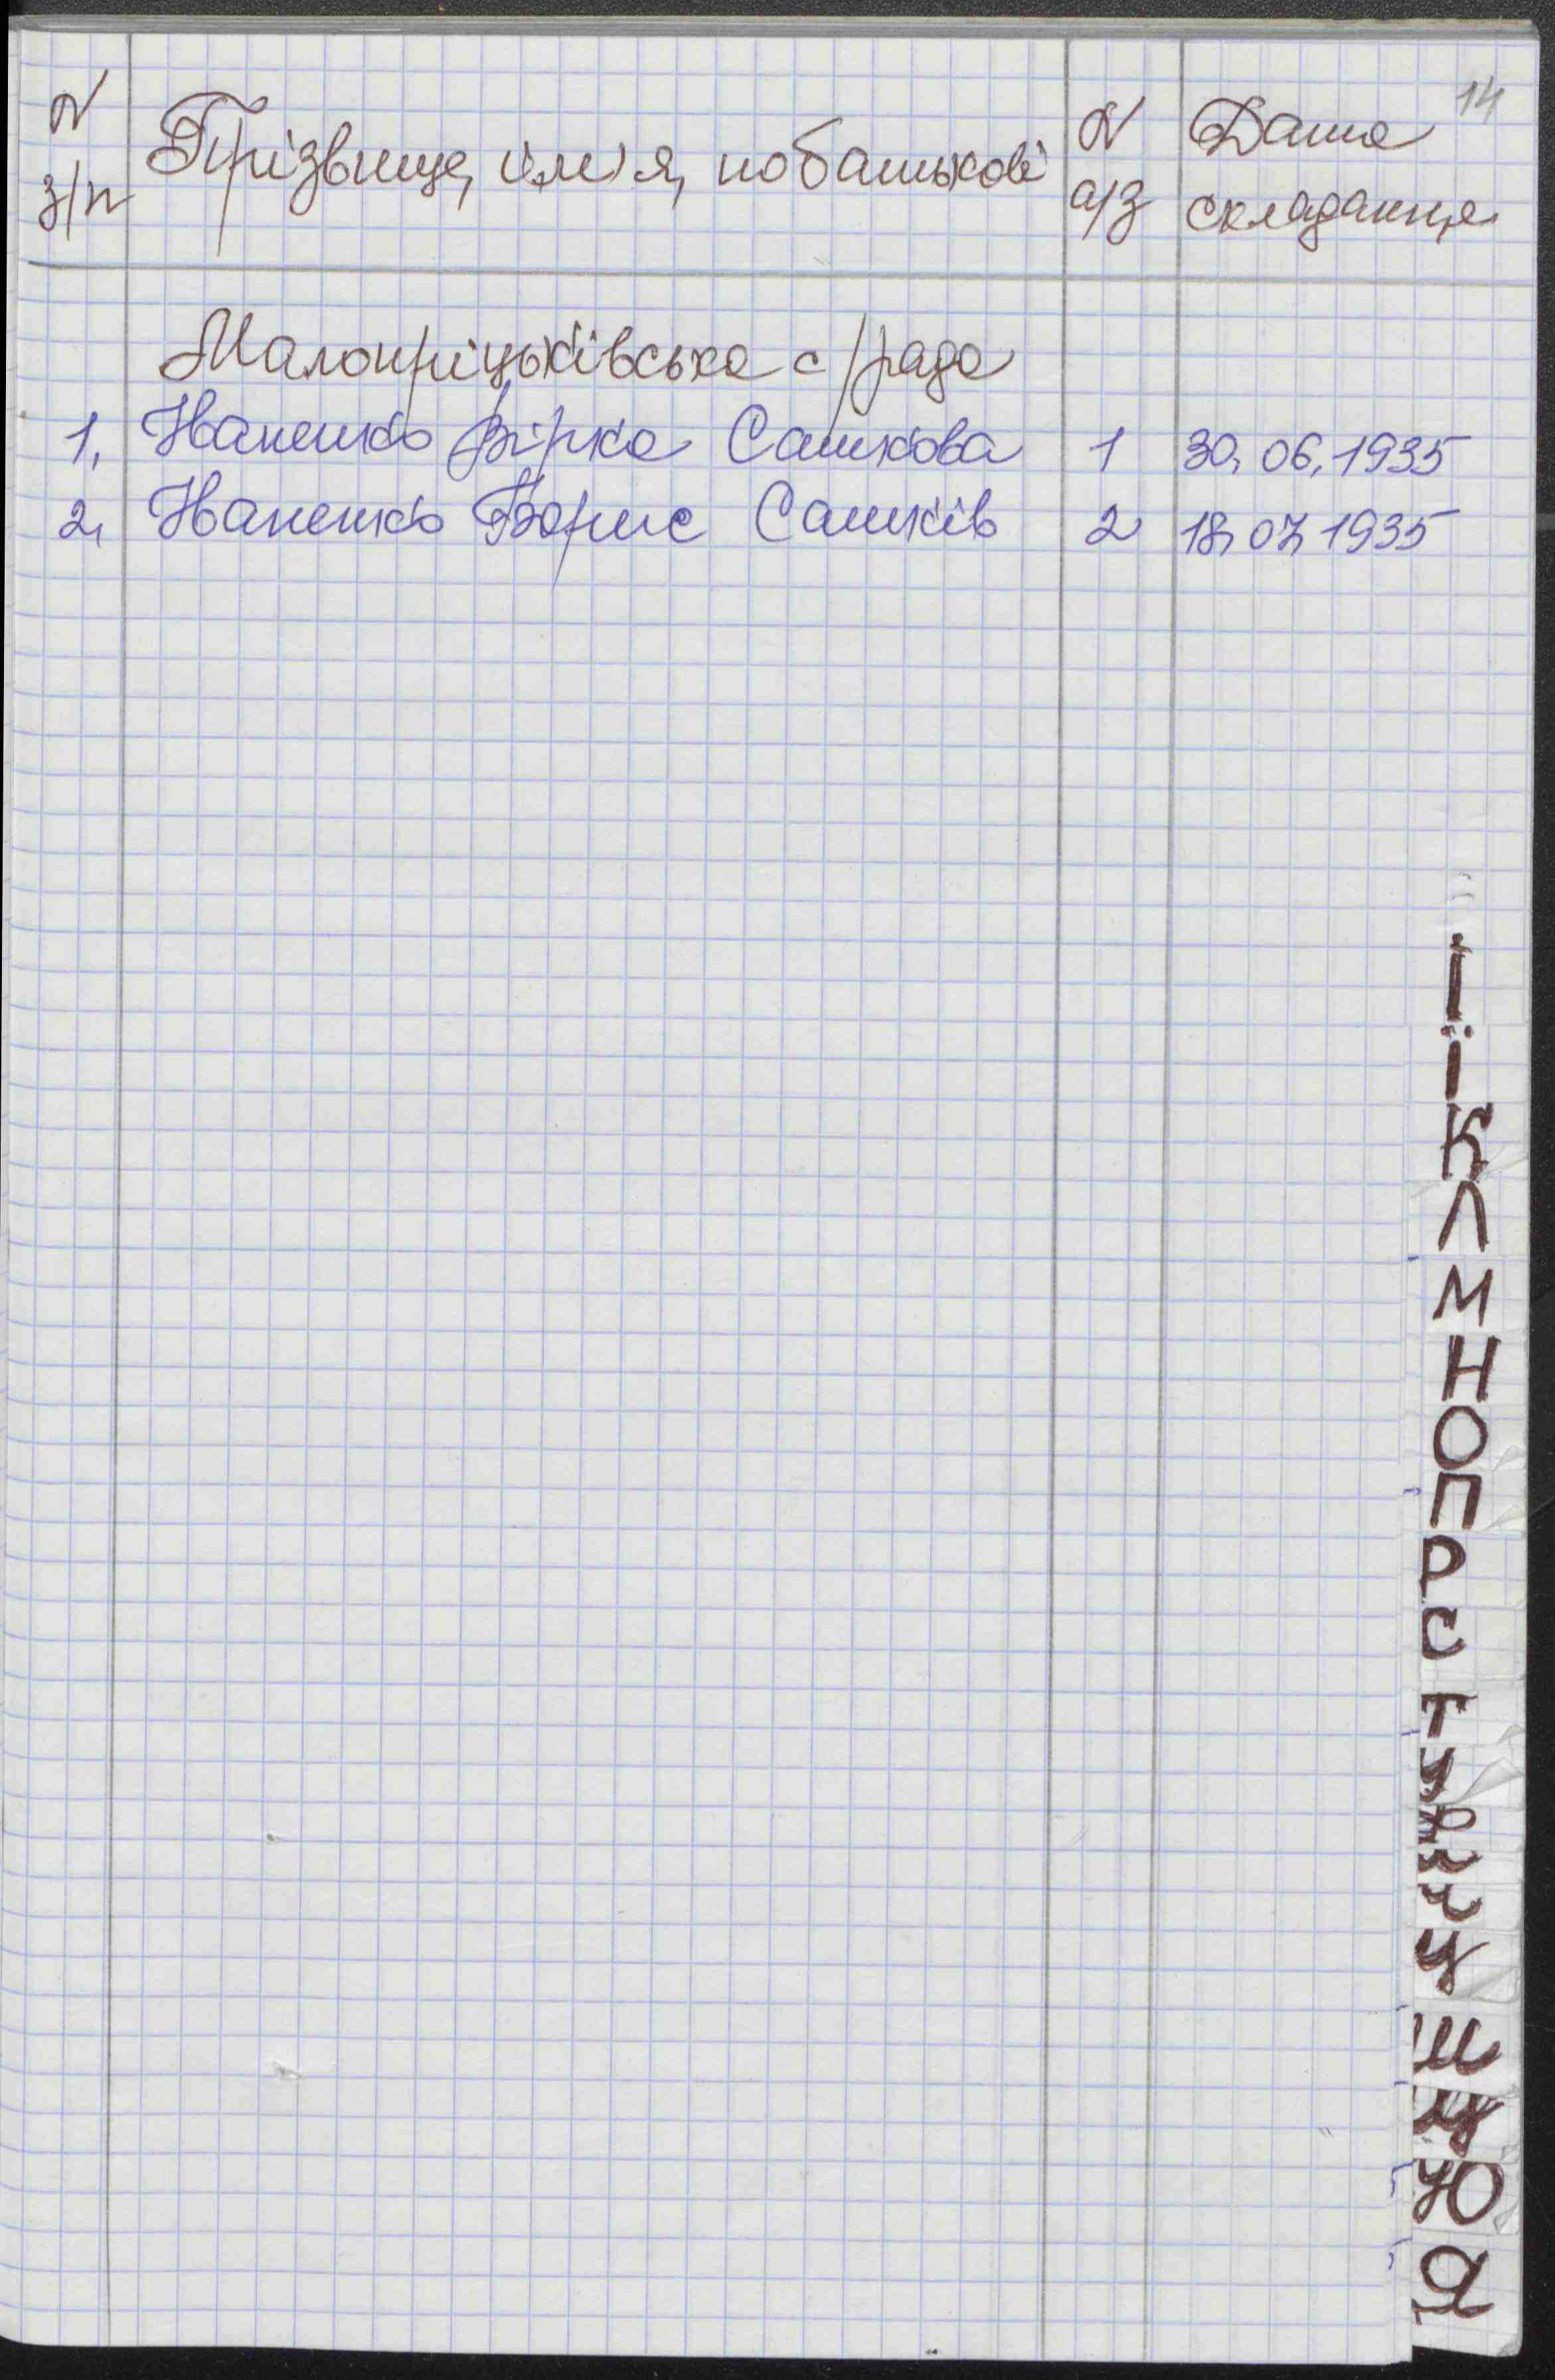 14
N з/п Прізвище, ім'я, по батькові N а/з Дата складання
Малокріцьківська с/рада
1. Іваненко Вірка Сашкова 1 30.06.1935
2. Іваненко Борис Сашків 2 18.07.1935
І
Ї
К
Л
М
Н
О
П
Р
С
Т
У
Ч
Ш
Щ
Ю
Я